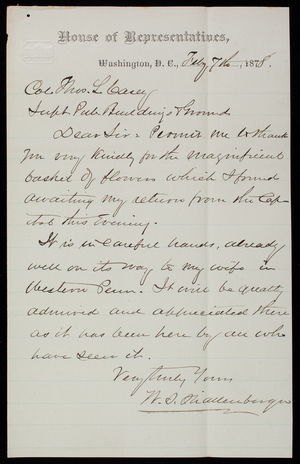 House of Representatives,
Washington, D. C., Feby 7th, 1878.
Col Thos. L. Casey
Supt Pub Buildings & Grounds
Dear Sir: Permit me to thank
you very kindly for the magnificent
basket of flowers which I found
awaiting my return from the Cap-
itol this evening.
It is in careful hands, already
well on its way to my wife in
Western Penn. It will be greatly
admired and appreciated there
as it has been here by all who
have seen it.
Very truly Yours
W. S. Shallenberger